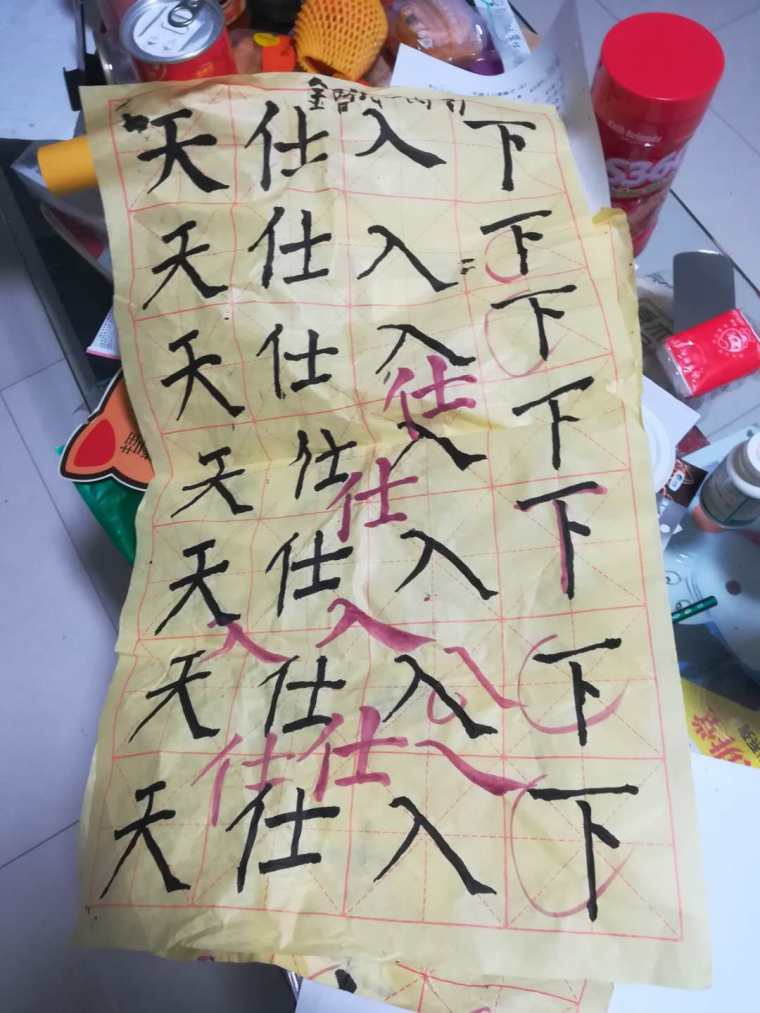 天仕入下
天仕入下
天仕入下
仕
天仕入下
仕
天仕入下
入入
天仕入下
仕仕
天仕入下